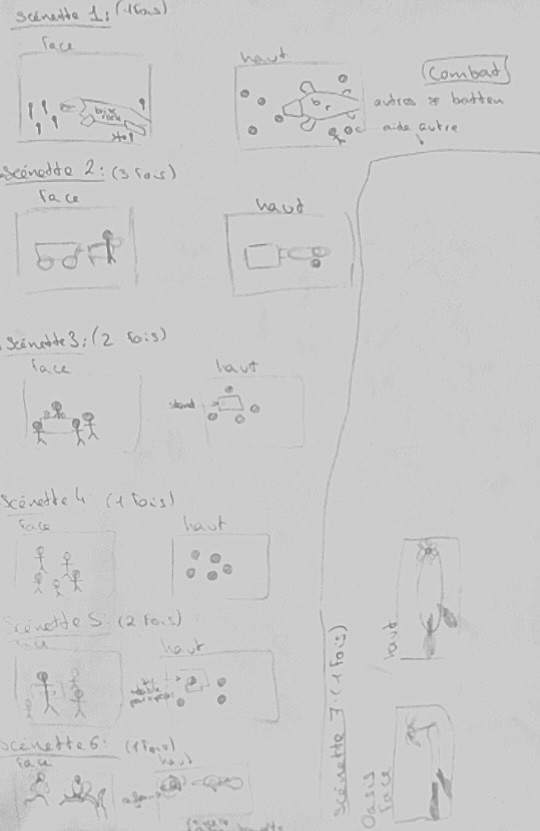 Scénette 1: (1 fois)
face
haut
Combat
autres battent
aide autre
Scénette 2: (3 fois)
face
haut
Scénette 3: (2 fois)
face
haut
stand
Scénette 4 (1 fois)
face
haut
Scénette 5: (2 fois)
face
haut
table
Scénette 6: (1 fois)
face
haut
Scénette 7: (1 fois)
haut
Oasis
face